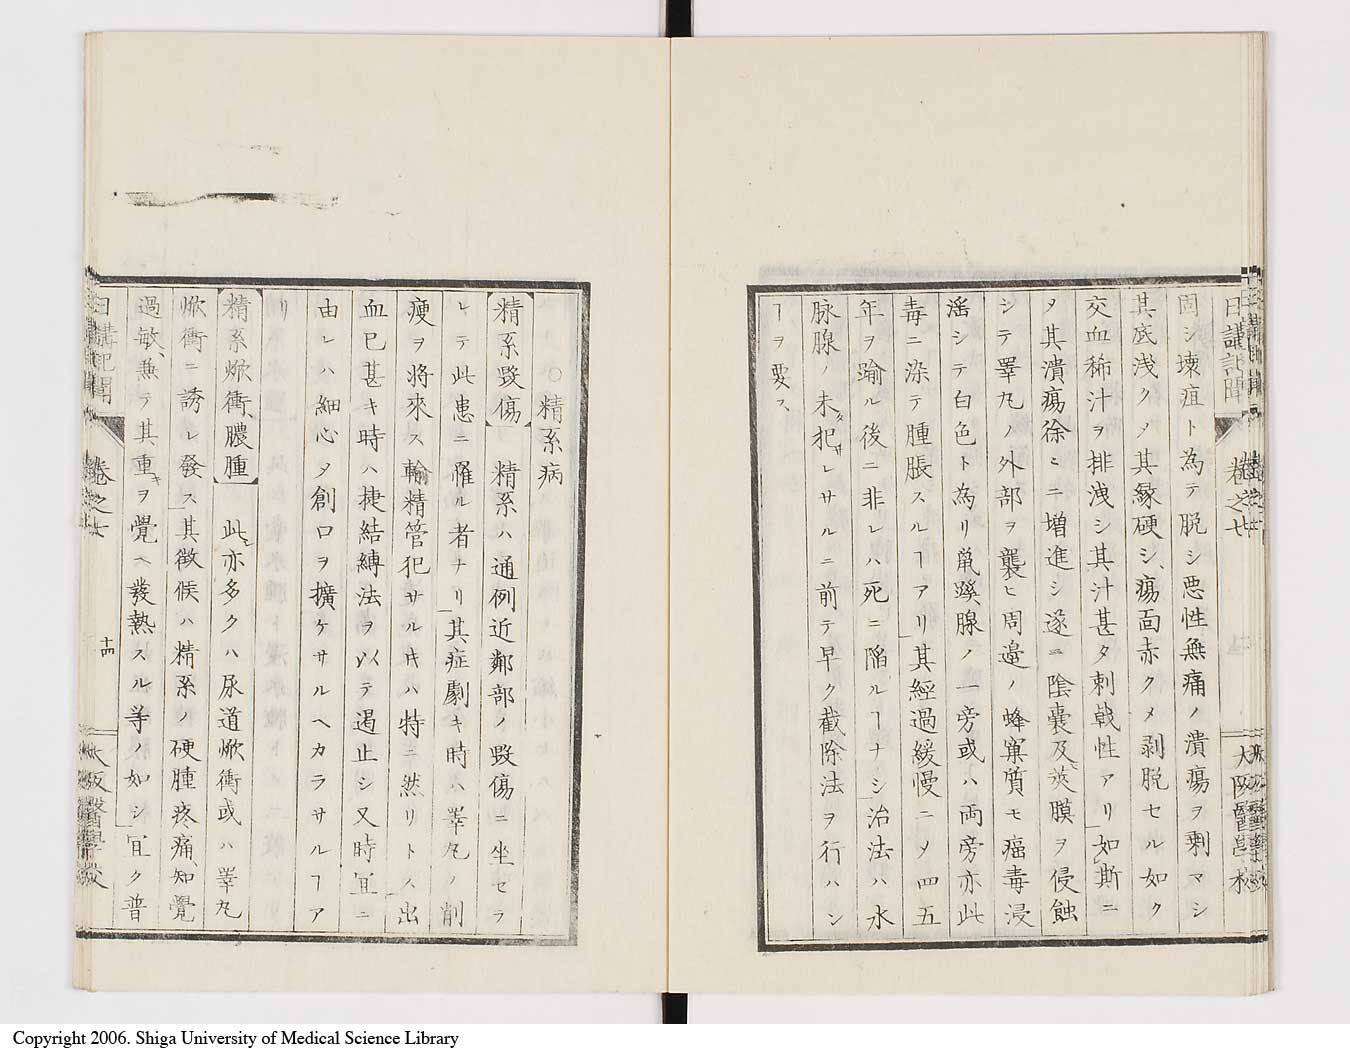 日講記聞 卷之七 大阪醫學校
固シ壊疽ト為テ脱シ悪性無痛ノ潰瘍ヲ剰マシ
其底浅クメ其縁硬シ瘍面赤クメ剥脱セル如ク
交血稀汁ヲ排洩シ其汁甚タ刺戟性アリ如斯ニ
メ其潰瘍徐ミニ増進シ遂ニ陰嚢及莢膜ヲ侵蝕
シテ睾丸ノ外部ヲ襲ヒ周邉ノ蜂窠質モ癌毒浸
滛シテ白色ト為リ鼠蹊腺ノ一旁或ハ両旁亦此
毒ニ染テ腫脹スルヿアリ其經過緩慢ニメ四五
年ヲ踰ル後ニ非レハ死ニ陥ルヿナシ治法ハ水
脉腺ノ未タ犯サレサルニ前テ早ク截除法ヲ行ハン
ヿヲ要ス
○精系病
精系毀傷 精系ハ通例近鄰部ノ毀傷ニ坐セラ
レテ此患ニ罹ル者ナリ其症劇キ時ハ睾丸ノ削
瘦ヲ將來ス輸精管犯サル圡ハ特ニ然リトス出
血已甚キ時ハ捷結縛法ヲ以テ遏止シ又時宜ニ
由レハ細心メ創口ヲ擴ケサルヘカラサルヿア
リ
精系焮衝膿腫 此亦多クハ尿道焮衝或ハ睾丸
焮衝ニ誘レ發ス其徴候ハ精系ノ硬腫疼痛、知覺
過敏、兼テ其重キヲ覺ヘ發熱スル等ノ如シ宜ク普
日講記聞 卷之七 十四 大阪醫學校
Copyright 2006. Shiga University of Medical Science Library